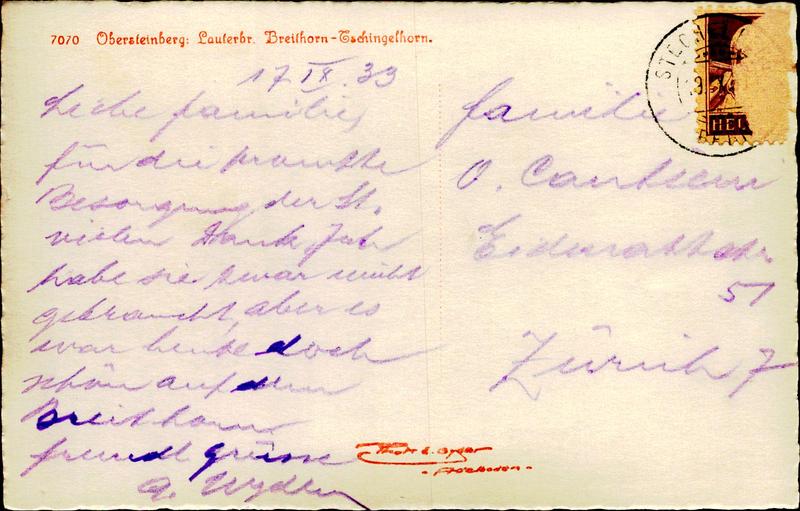 7070 Obersteinberg: Lauterbr. Breithorn-Tschingelhorn.
17 IX. 33
Liebe Familie,
für die prompte
Besorgung der St.
vielen Dank Ich
habe sie zwar nicht
gebraucht, aber es
war heute doch
schön auf dem
Breithorn
freundl Grüsse
Familie
O.
51
Zürich 7
STECHEL
HEL